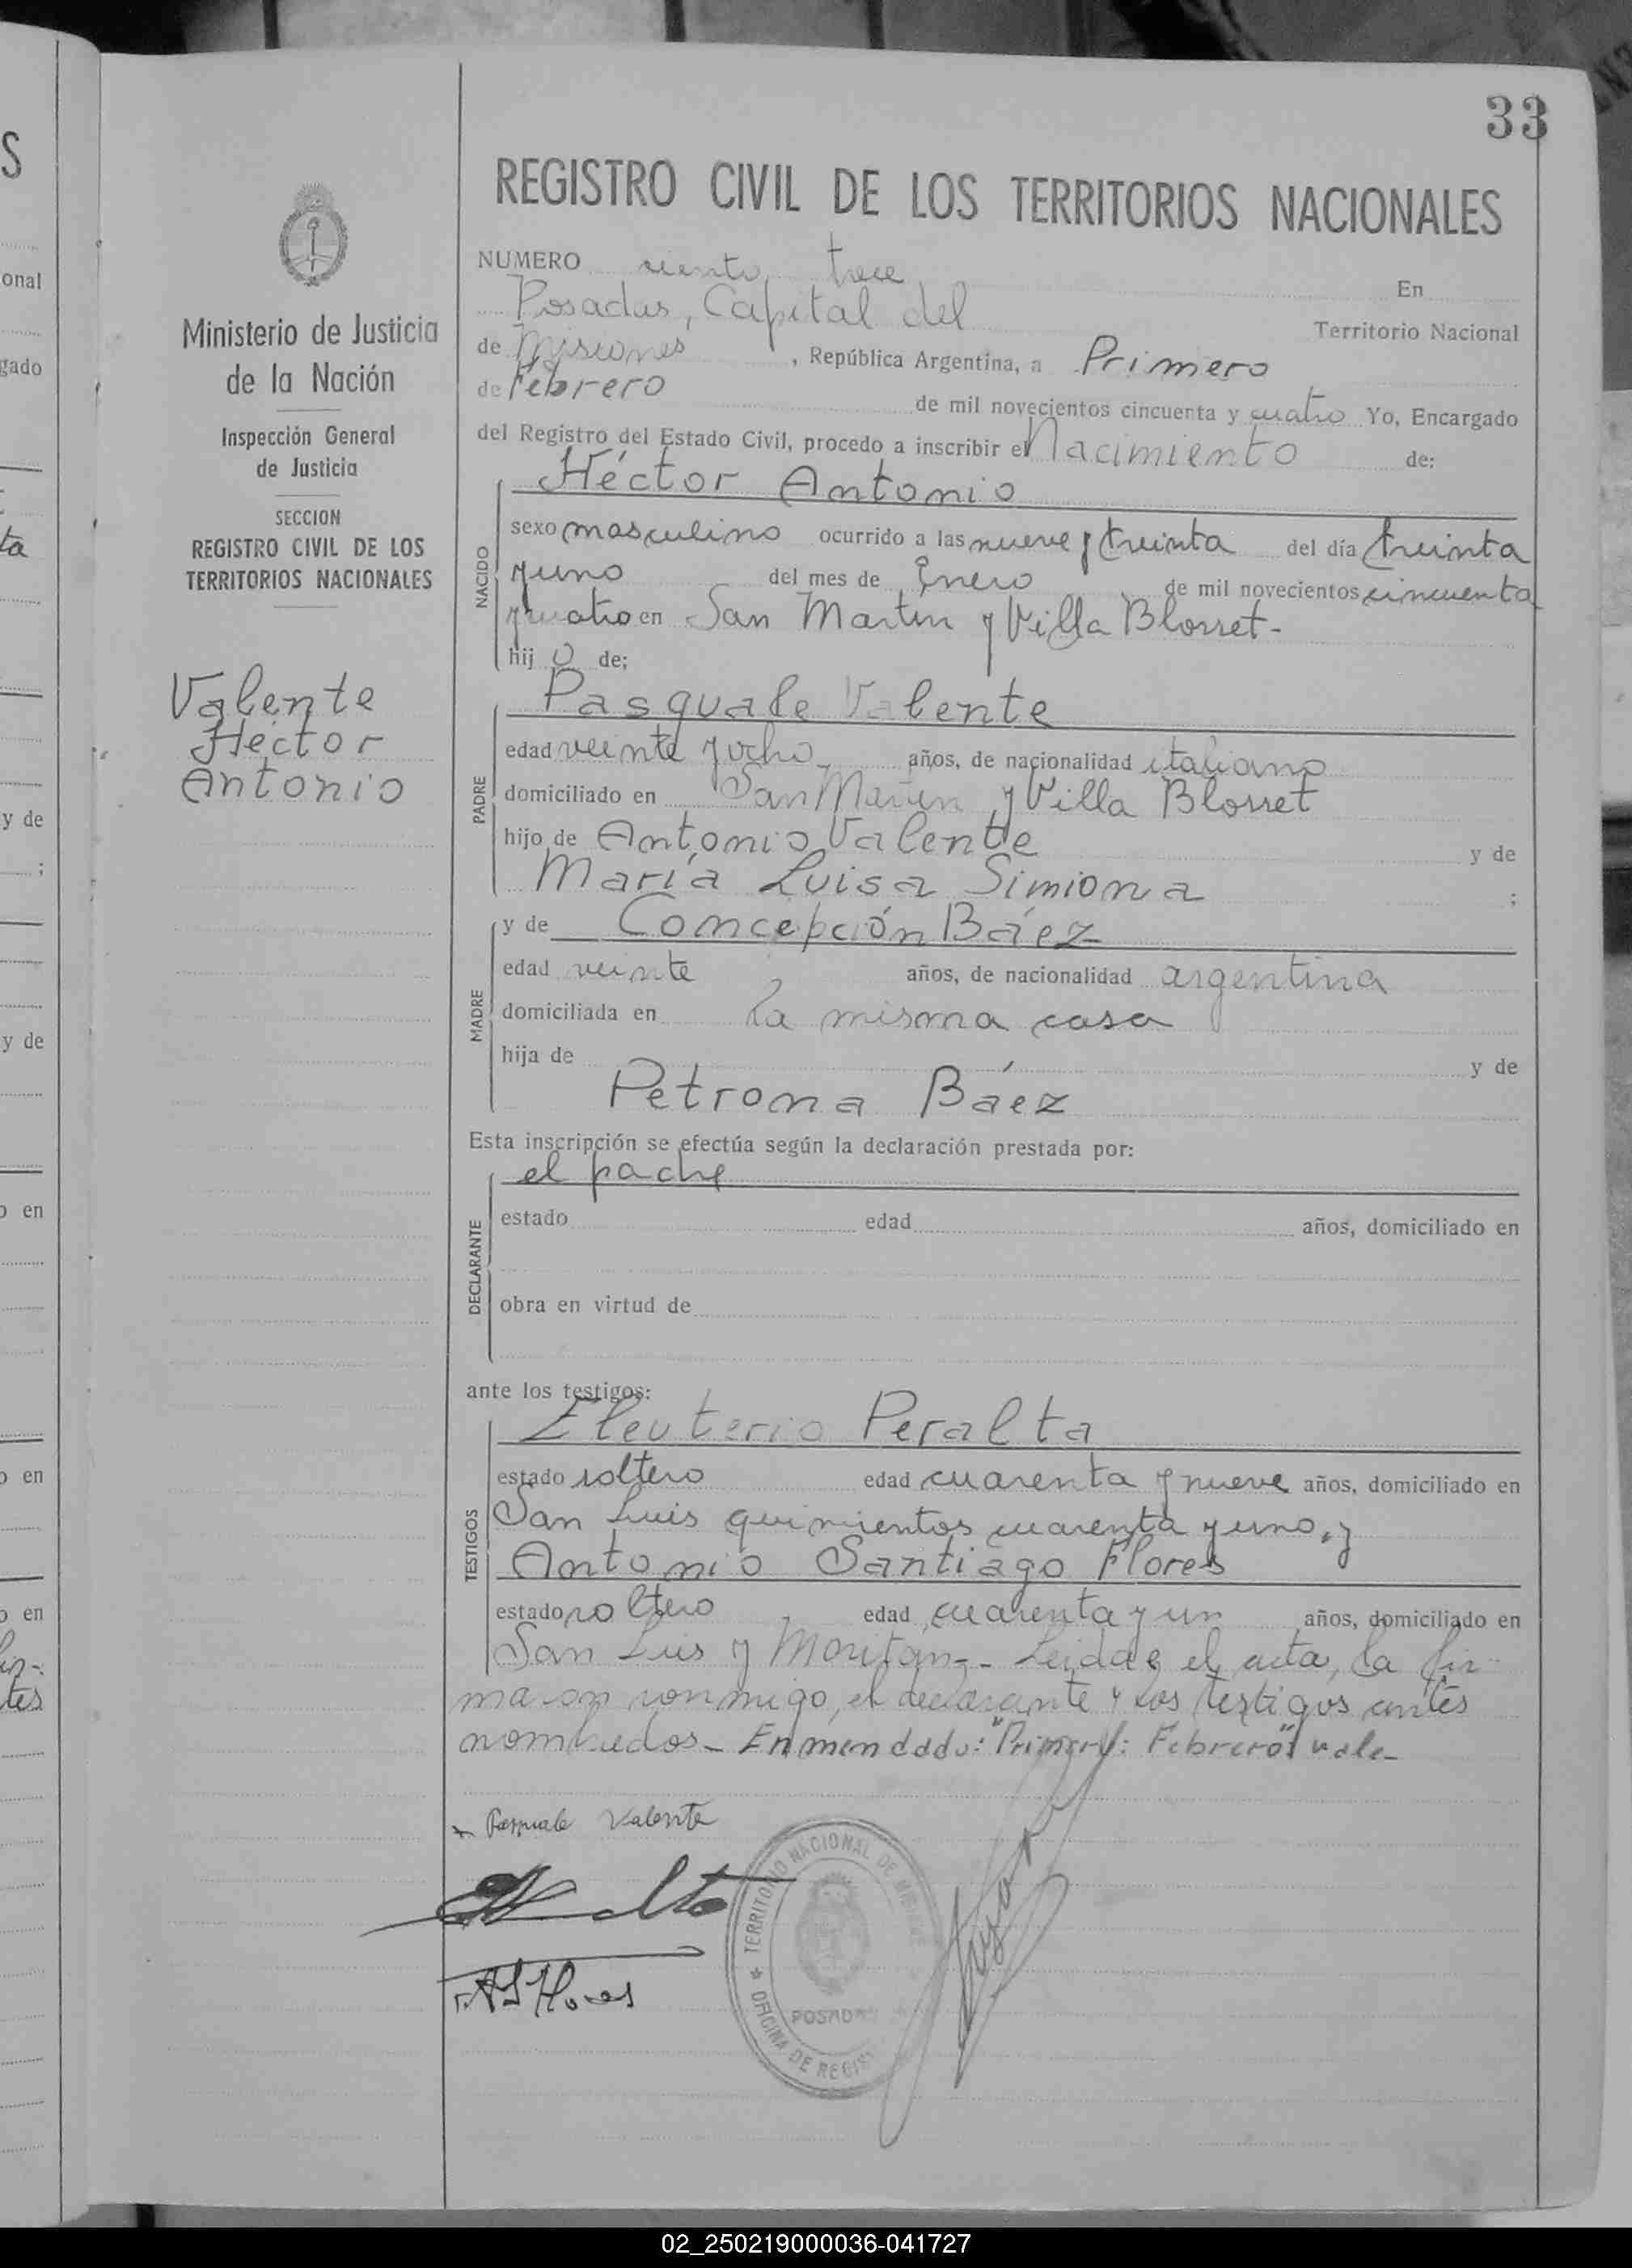 33
REGISTRO CIVIL DE LOS TERRITORIOS NACIONALES
Ministerio de Justicia
de la Nación
Inspección General
de Justicia
SECCION
REGISTRO CIVIL DE LOS
TERRITORIOS NACIONALES
Valente
Héctor
Antonio
NUMERO ciento trece En
Posadas, Capital del Territorio Nacional
de Misiones, República Argentina, a Primero
de Febrero de mil novecientos cincuenta y cuatro Yo, Encargado
del Registro del Estado Civil, procedo a inscribir el Nacimiento de:
NACIDO
Héctor Antonio
sexo masculino ocurrido a las nueve y treinta del día treinta
y uno del mes de Enero de mil novecientos cincuenta
y cuatro en San Martin y Villa Blosset-
hij o de;
PADRE
Pasquale Valente
edad veinte y ocho años, de nacionalidad italiano
domiciliado en San Martin y Villa Blosset
hijo de Antonio Valente y de
María Luisa Simiona ;
MADRE
y de Concepción Báez
edad veinte años, de nacionalidad argentina
domiciliada en La misma casa
hija de y de
Petrona Báez
Esta inscripción se efectúa según la declaración prestada por:
DECLARANTE
el padre
estado edad años, domiciliado en
obra en virtud de
ante los testigos:
TESTIGOS
Eleuterio Peralta
estado soltero edad cuarenta y nueve años, domiciliado en
San Luis quinientos cuarenta y uno, y
Antonio Santiago Flores
estado soltero edad cuarenta y un años, domiciliado en
San Luis y Moritan-- Leida el acta, la fir-
man conmigo, el declarante y los testigos antes
nombrados- Enmendado: "Primero: Febrero" vale-
Pasquale Valente
A S Flores
TERRITORIO NACIONAL DE MISIONES
POSADAS
OFICINA DE REGIS
02_250219000036-041727